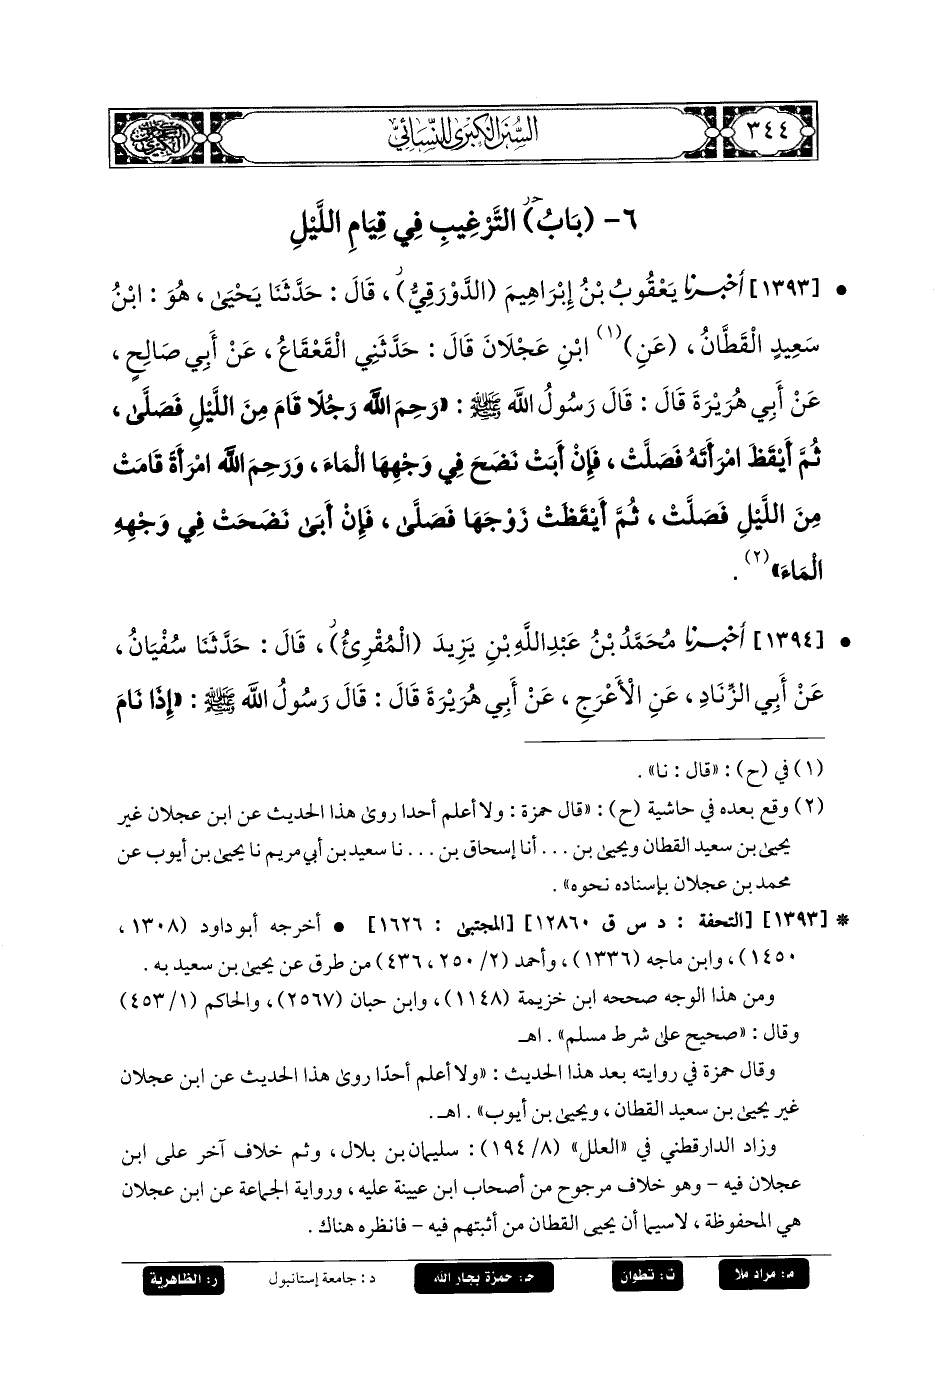 السنن الكبرى للنسائي
٣٤٤
٦- (بَابُ) التَّرْغِيبِ فِي قِيَامِ اللَّيْلِ
• [١٣٩٣] أخبرنا يَعْقُوبُ بْنُ إِبْرَاهِيمَ (الدَّوْرَقِيُّ)، قَالَ : حَدَّثَنَا يَحْيَى، هُوَ : ابْنُ
سَعِيدٍ الْقَطَّانُ، (عَنِ)(١) ابْنِ عَجْلَانَ قَالَ : حَدَّثَنِي الْقَعْقَاعُ، عَنْ أَبِي صَالِحٍ،
عَنْ أَبِي هُرَيْرَةَ قَالَ : قَالَ رَسُولُ اللَّه ﷺ : «رَحِمَ اللَّه رَجُلًا قَامَ مِنَ اللَّيْلِ فَصَلَّى،
ثُمَّ أَيْقَظَ امْرَأَتَهُ فَصَلَّتْ، فَإِنْ أَبَتْ نَضَحَ فِي وَجْهِهَا الْمَاءَ، وَرَحِمَ اللَّه امْرَأَةً قَامَتْ
مِنَ اللَّيْلِ فَصَلَّتْ، ثُمَّ أَيْقَظَتْ زَوْجَهَا فَصَلَّى، فَإِنْ أَبَى نَضَحَتْ فِي وَجْهِهِ
الْمَاءَ»(٢).
• [١٣٩٤] أخبرنا مُحَمَّدُ بْنُ عَبْدِاللَّهِ بْنِ يَزِيدَ (الْمُقْرِئُ)، قَالَ : حَدَّثَنَا سُفْيَانُ،
عَنْ أَبِي الزِّنَادِ، عَنِ الْأَعْرَجِ، عَنْ أَبِي هُرَيْرَةَ قَالَ : قَالَ رَسُولُ اللَّه ﷺ : «إِذَا نَامَ
(١) في (ح) : «قال : نا».
(٢) وقع بعده في حاشية (ح) : «قال حمزة : ولا أعلم أحدا روى هذا الحديث عن ابن عجلان غير
يحيى بن سعيد القطان ويحيى بن . . . أنا إسحاق بن . . . نا سعيد بن أبي مريم نا يحيى بن أيوب عن
محمد بن عجلان بإسناده نحوه».
* [١٣٩٣] [التحفة : د س ق ١٢٨٦٠] [المجتبى : ١٦٢٦] • أخرجه أبو داود (١٣٠٨،
١٤٥٠)، وابن ماجه (١٣٣٦)، وأحمد (٢/ ٢٥٠، ٤٣٦) من طرق عن يحيى بن سعيد به.
ومن هذا الوجه صححه ابن خزيمة (١١٤٨)، وابن حبان (٢٥٦٧)، والحاكم (١/ ٤٥٣)
وقال : «صحيح على شرط مسلم». اهـ
وقال حمزة في روايته بعد هذا الحديث : «ولا أعلم أحدًا روى هذا الحديث عن ابن عجلان
غير يحيى بن سعيد القطان، ويحيى بن أيوب». اهـ.
وزاد الدارقطني في «العلل» (٨/ ١٩٤) : سليمان بن بلال، وثم خلاف آخر على ابن
عجلان فيه - وهو خلاف مرجوح من أصحاب ابن عيينة عليه، ورواية الجماعة عن ابن عجلان
هي المحفوظة، لاسيما أن يحيى القطان من أثبتهم فيه - فانظره هناك.
م: مراد ملا ت: تطوان ح: حمزة بجار الله د: جامعة إستانبول ر: الظاهرية